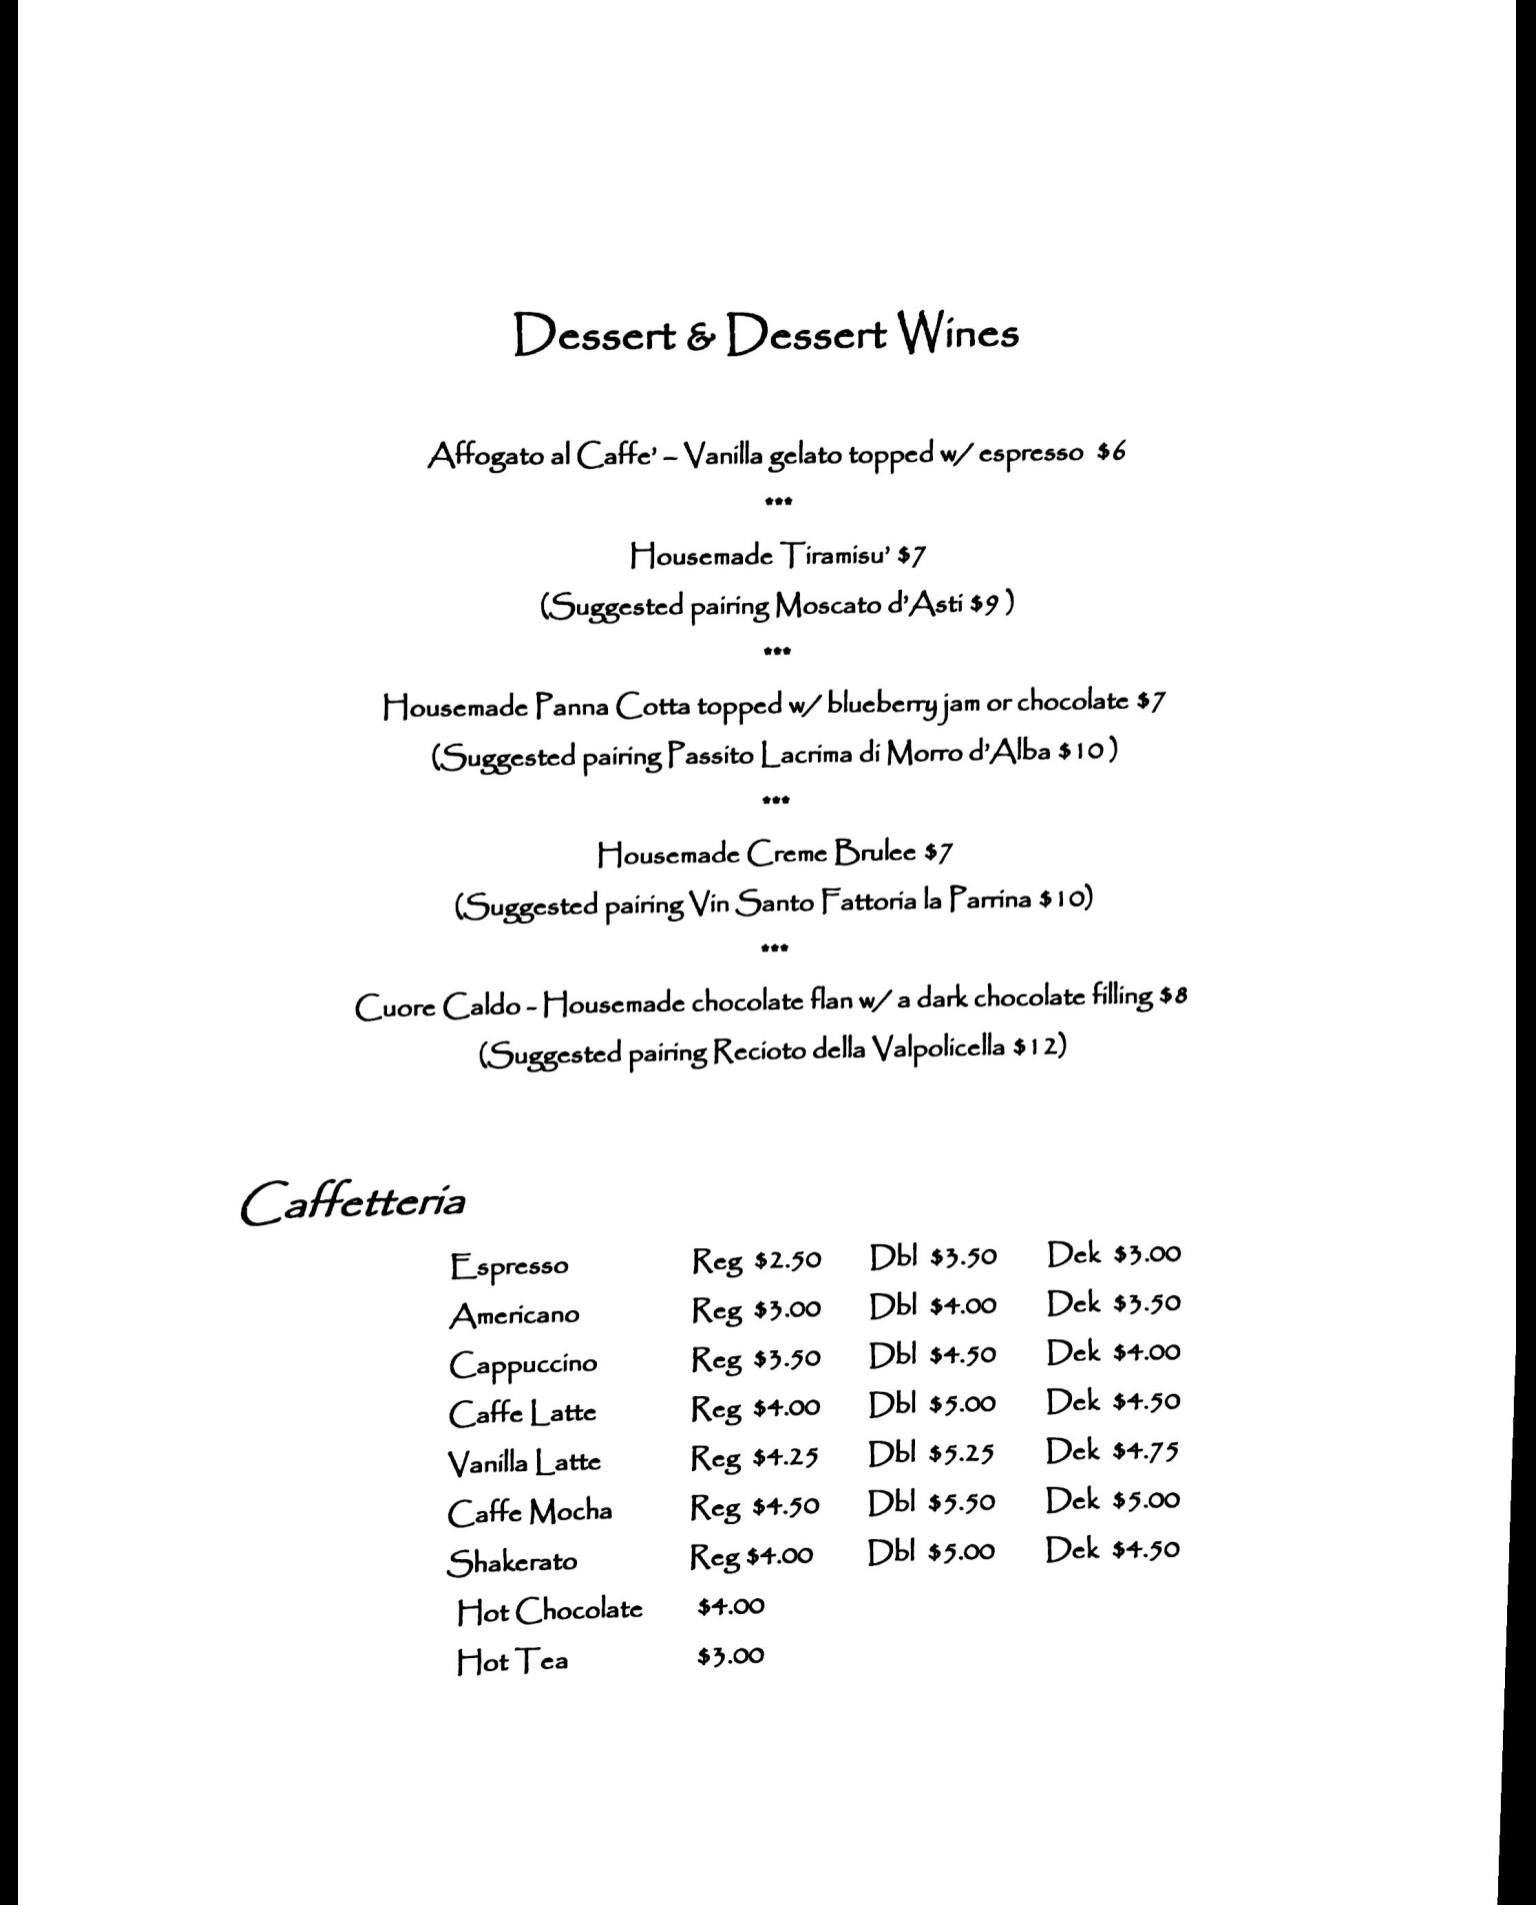 Dessert & Dessert Wines
Affogato al Caffe' – Vanilla gelato topped w/ espresso $6
***
Housemade Tiramisu' $7
(Suggested pairing Moscato d'Asti $9 )
***
Housemade Panna Cotta topped w/ blueberry jam or chocolate $7
(Suggested pairing Passito Lacrima di Morro d'Alba $10 )
***
Housemade Creme Brulee $7
(Suggested pairing Vin Santo Fattoria la Parrina $10)
***
Cuore Caldo - Housemade chocolate flan w/ a dark chocolate filling $8
(Suggested pairing Recioto della Valpolicella $12)
Caffetteria
Espresso Reg $2.50 Dbl $3.50 Dek $3.00
Americano Reg $3.00 Dbl $4.00 Dek $3.50
Cappuccino Reg $3.50 Dbl $4.50 Dek $4.00
Caffe Latte Reg $4.00 Dbl $5.00 Dek $4.50
Vanilla Latte Reg $4.25 Dbl $5.25 Dek $4.75
Caffe Mocha Reg $4.50 Dbl $5.50 Dek $5.00
Shakerato Reg $4.00 Dbl $5.00 Dek $4.50
Hot Chocolate $4.00
Hot Tea $3.00